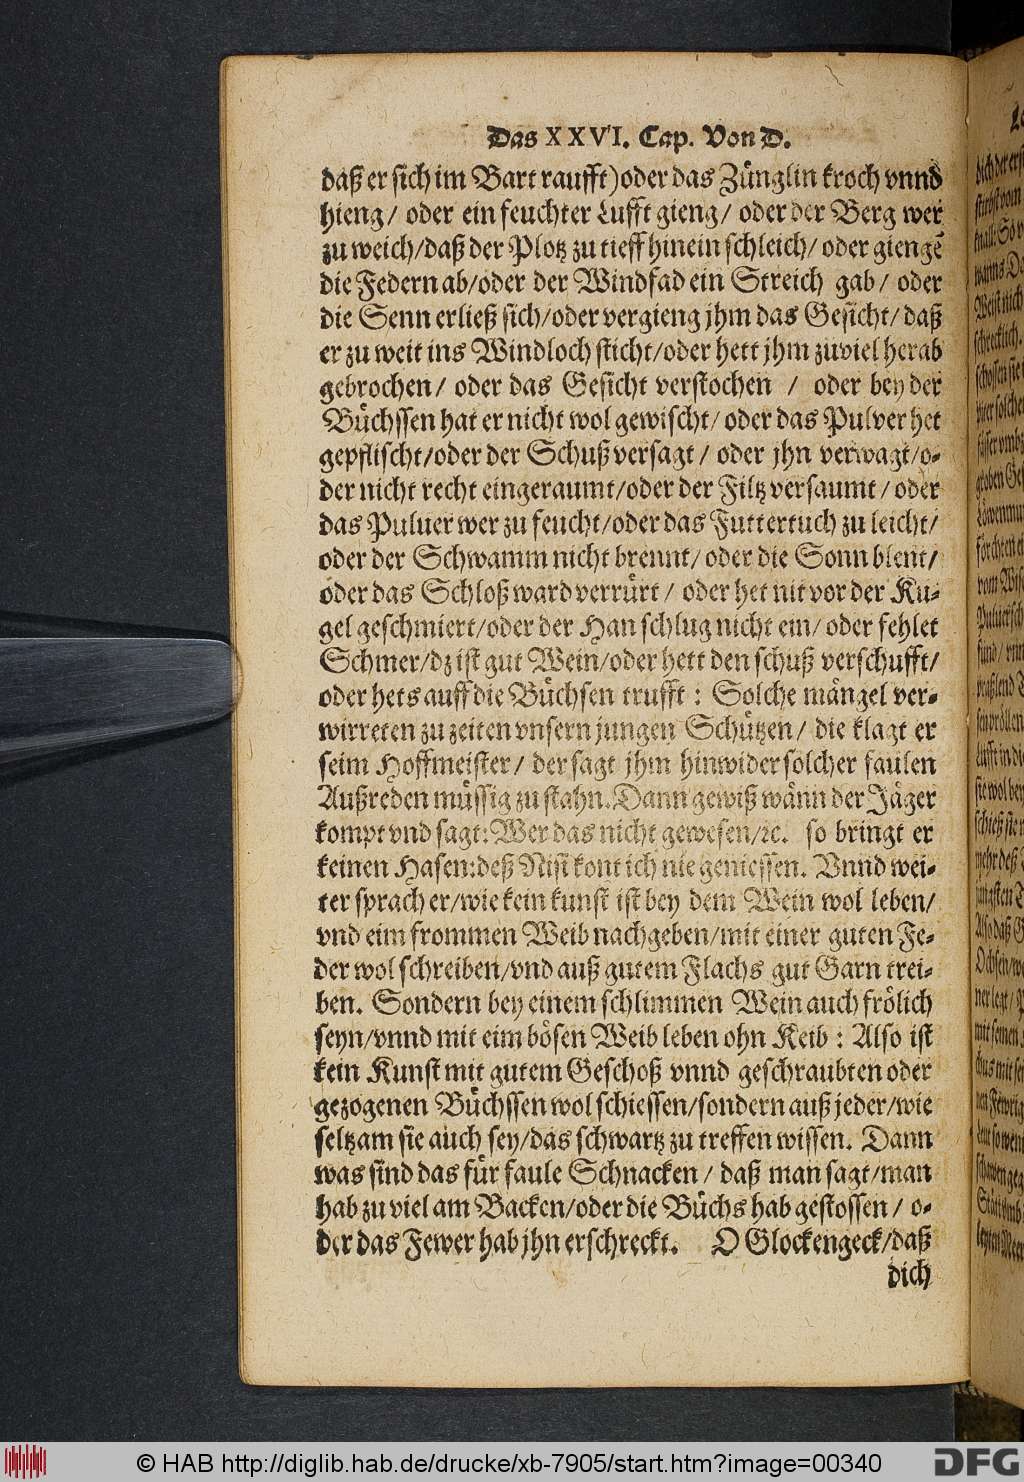 Das XXVI. Cap. Von D.
daß er sich im Bart raufft) oder das Zünglin kroch vnnd
hieng/ oder ein feuchter Lufft gieng/ oder der Berg wer
zu weich/ daß der Plotz zu tieff hinein schleich/ oder giengē
die Federn ab/ oder der Windfad ein Streich gab/ oder
die Senn erließ sich/ oder vergieng jhm das Gesicht/ daß
er zu weit ins Windloch sticht/ oder hett jhm zuviel herab
gebrochen/ oder das Gesicht verstochen / oder bey der
Büchssen hat er nicht wol gewischt/ oder das Pulver het
gepflischt/ oder der Schuß versagt/ oder jhn verwagt/ o-
der nicht recht eingeraumt/ oder der Filtz versaumt/ oder
das Puluer wer zu feucht/ oder das Futtertuch zu leicht/
oder der Schwamm nicht brennt/ oder die Sonn blent/
oder das Schloß ward verrürt/ oder het nit vor der Ku-
gel geschmiert/ oder der Han schlug nicht ein/ oder fehlet
Schmer/ dz ist gut Wein/ oder hett den schuß verschufft/
oder hets auff die Büchsen trufft : Solche mängel ver-
wirreten zu zeiten vnsern jungen Schützen/ die klagt er
seim Hoffmeister/ der sagt jhm hinwider solcher faulen
Außreden müssig zu stahn. Dann gewiß wänn der Jäger
kompt vnd sagt: Wer das nicht gewesen/ ꝛc. so bringt er
keinen Hasen: deß Nisi kont ich nie geniessen. Vnnd wei-
ter sprach er/ wie kein kunst ist bey dem Wein wol leben/
vnd eim frommen Weib nachgeben/ mit einer guten Fe-
der wol schreiben/ vnd auß gutem Flachs gut Garn trei-
ben. Sondern bey einem schlimmen Wein auch frölich
seyn/ vnnd mit eim bösen Weib leben ohn Keib : Also ist
kein Kunst mit gutem Geschoß vnnd geschraubten oder
gezogenen Büchssen wol schiessen/ sondern auß jeder/ wie
seltzam sie auch sey/ das schwartz zu treffen wissen. Dann
was sind das für faule Schnacken/ daß man sagt/ man
hab zu viel am Backen/ oder die Büchs hab gestossen/ o-
der das Fewer hab jhn erschreckt. O Glockengeck/ daß
dich
© HAB http://diglib.hab.de/drucke/xb-7905/start.htm?image=00340
DFG